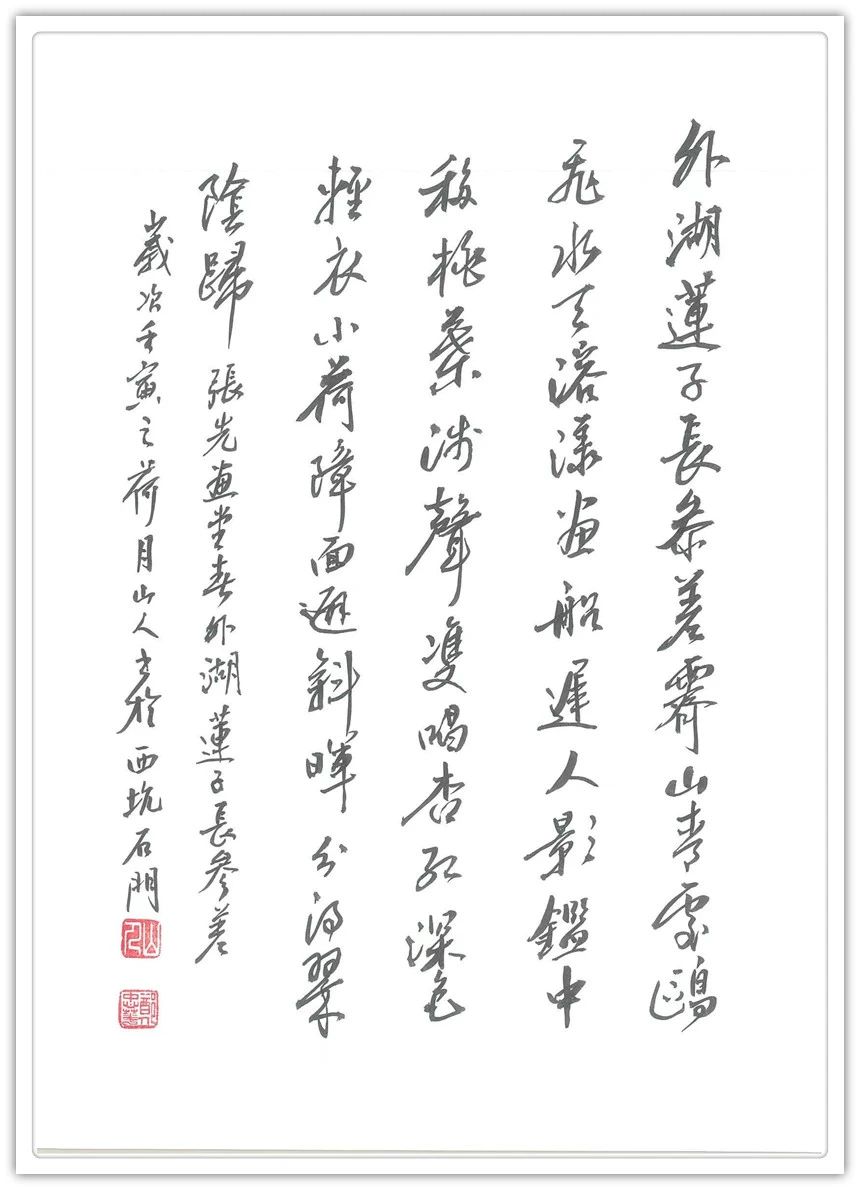 外湖蓮子長參差霽山青處鷗
飛水天溶漾畫船遲人影鑑中
移桃葉淺聲雙唱杏紅深色
輕衣小荷障面避斜暉分得翠
陰歸 張先畫堂春外湖蓮子長參差
歲次壬寅之荷月山人書於西坑石門
山人